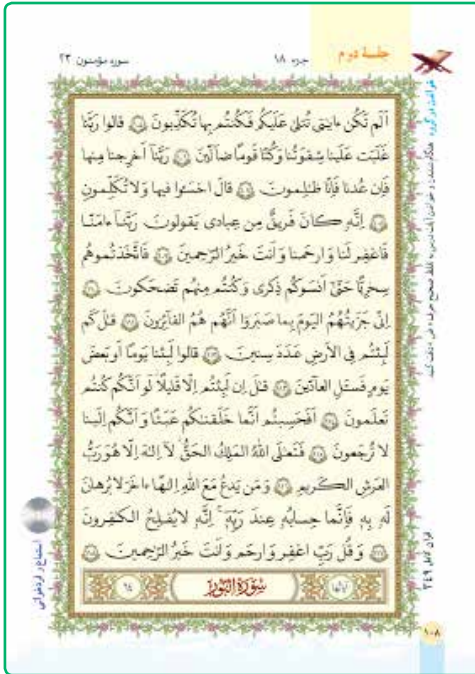 جلسهٔ دوم
جزء ۱۸
سوره مؤمنون ۲۳
اَلَم تَكُن ءايٰتى تُتلىٰ عَلَيكُم فَكُنتُم بِها تُكَذِّبونَ ﴿۱۰۵﴾ قالوا رَبَّنا
غَلَبَت عَلَينا شِقوَتُنا وَ كُنّا قَومًا ضالّينَ ﴿۱۰۶﴾ رَبَّنا اَخرِجنا مِنها
فَاِن عُدنا فَاِنّا ظٰلِمونَ ﴿۱۰۷﴾ قالَ اخسَئوا فيها وَ لا تُكَلِّمونِ
﴿۱۰۸﴾ اِنَّهو كانَ فَريقٌ مِن عِبادى يَقولونَ رَبَّنا ءامَنّا
فَاغفِر لَنا وَ ارحَمنا وَ اَنتَ خَيرُ الرّٰحِمينَ ﴿۱۰۹﴾ فَاتَّخَذتُموهُم
سِخرِيًّا حَتّىٰ اَنسَوكُم ذِكرى وَ كُنتُم مِنهُم تَضحَكونَ ﴿۱۱۰﴾
اِنّى جَزَيتُهُمُ اليَومَ بِما صَبَروا اَنَّهُم هُمُ الفائِزونَ ﴿۱۱۱﴾ قٰلَ كَم
لَبِثتُم فِى الاَرضِ عَدَدَ سِنينَ ﴿۱۱۲﴾ قالوا لَبِثنا يَومًا اَو بَعضَ
يَومٍ فَسئَلِ العادّينَ ﴿۱۱۳﴾ قٰلَ اِن لَبِثتُم اِلّا قَليلًا لَو اَنَّكُم كُنتُم
تَعلَمونَ ﴿۱۱۴﴾ اَفَحَسِبتُم اَنَّما خَلَقنٰكُم عَبَثًا وَ اَنَّكُم اِلَينا
لا تُرجَعونَ ﴿۱۱۵﴾ فَتَعٰلَى اللهُ المَلِكُ الحَقُّ لا اِلٰهَ اِلّا هُوَ رَبُّ
العَرشِ الكَريمِ ﴿۱۱۶﴾ وَ مَن يَدعُ مَعَ اللهِ اِلٰهًا ءاخَرَ لا بُرهانَ
لَهو بِهى فَاِنَّما حِسابُهو عِندَ رَبِّهى اِنَّهو لا يُفلِحُ الكٰفِرونَ
﴿۱۱۷﴾ وَ قُل رَبِّ اغفِر وَ ارحَم وَ اَنتَ خَيرُ الرّٰحِمينَ ﴿۱۱۸﴾
آياتها
سُورَةُ النّور
٦٤
خواندن در گروه:
استماع و فراخوانی
قرآن کامل ۳۴۹
۱۰۸